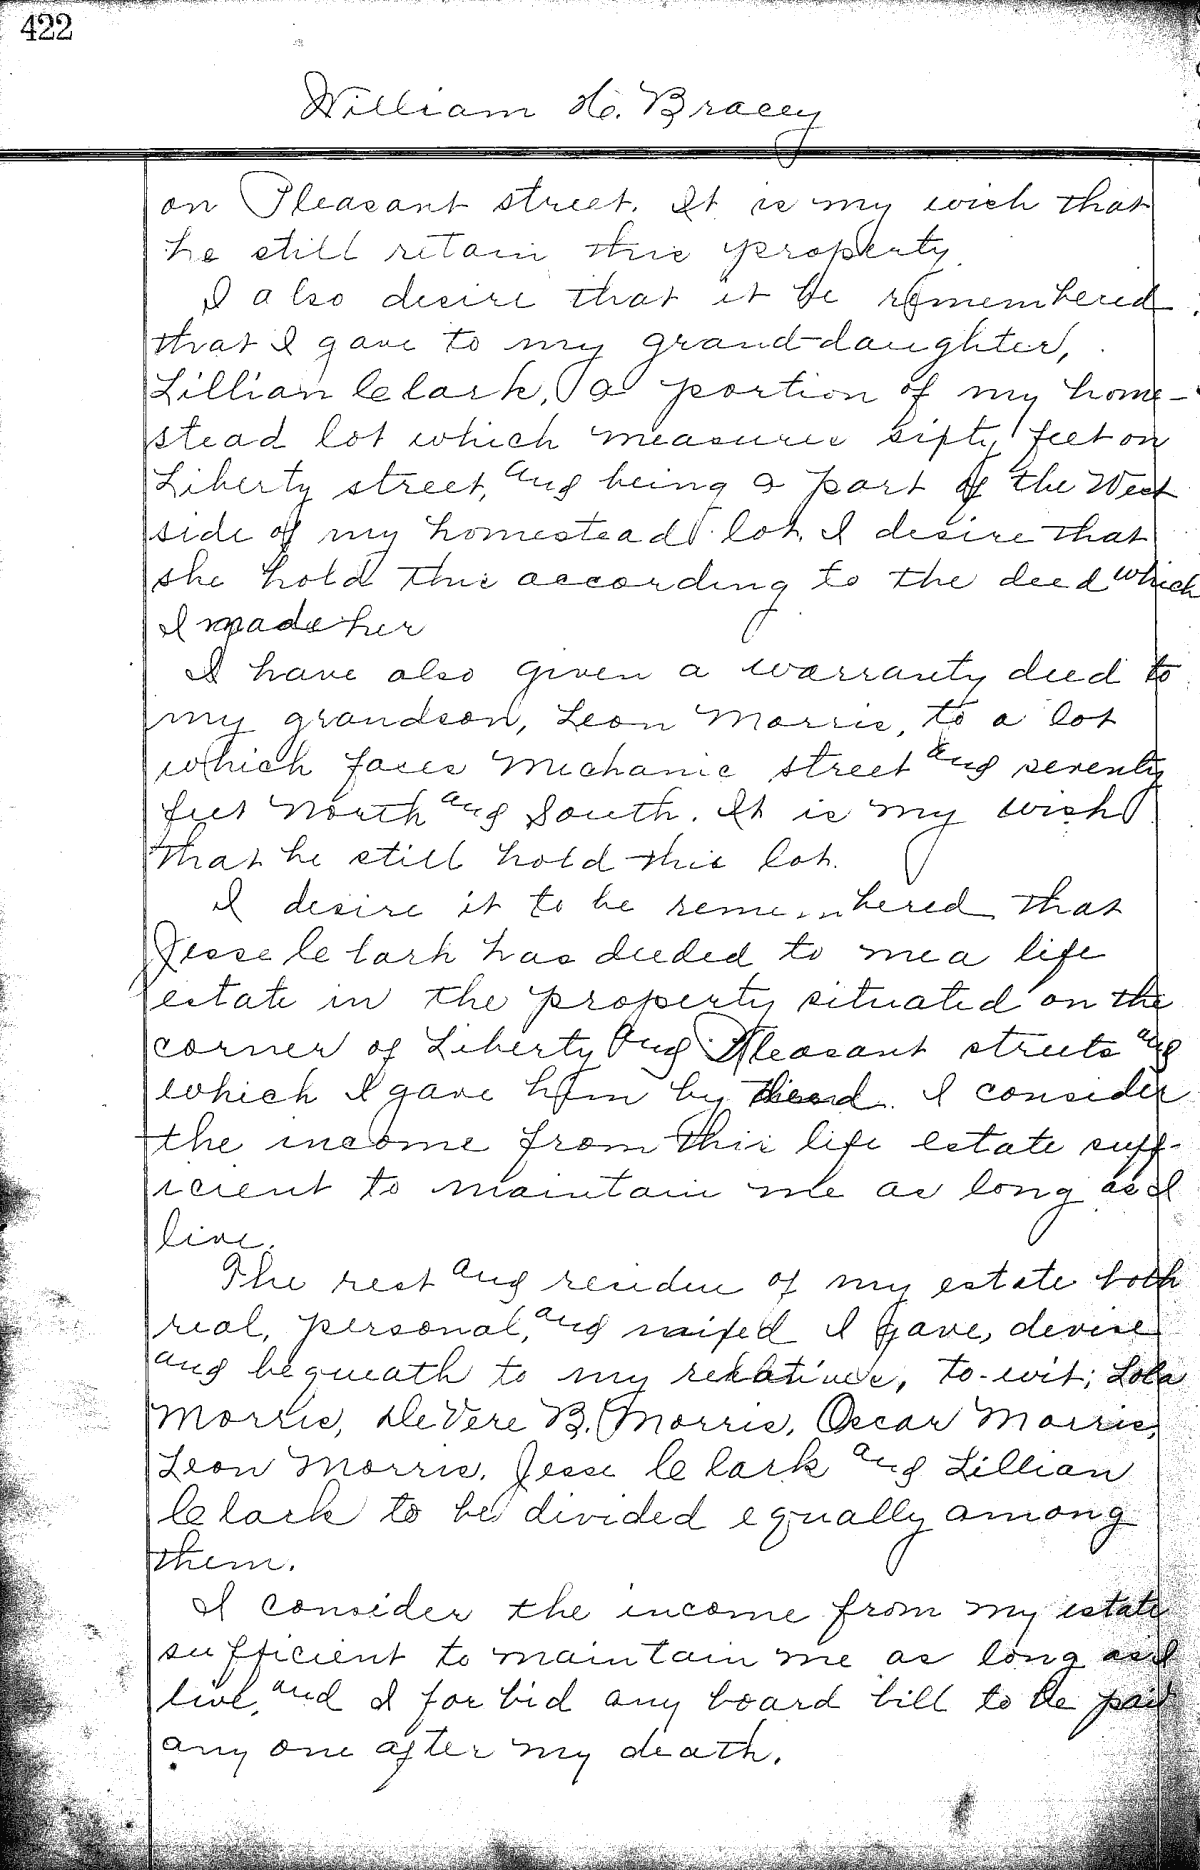 422
William H. Bracey
on Pleasant street. It is my wish that
he still retain this property.
I also desire that it be remembered
that I gave to my grand-daughter,
Lillian Clark, a portion of my home-
stead lot which measures sixty feet on
Liberty street, and being a part of the West
side of my homestead lot. I desire that
she hold this according to the deed which
I made her
I have also given a warranty deed to
my grandson, Leon Morris, to a lot
which faces Mechanic street and seventy
feet North and South. It is my wish
that he still hold this lot.
I desire it to be remembered that
Jesse Clark has deeded to me a life
estate in the property situated on the
corner of Liberty and Pleasant streets and
which I gave him by deed. I consider
the income from this life estate suff-
icient to maintain me as long as I
live.
The rest and residue of my estate both
real, personal, and mixed I gave, devise
and bequeath to my relatives, to-wit; Lola
Morris, DeVere B. Morris, Oscar Morris,
Leon Morris, Jesse Clark and Lillian
Clark to be divided equally among
them.
I consider the income from my estate
sufficient to maintain me as long as I
live, and I forbid any board bill to be paid
any one after my death.